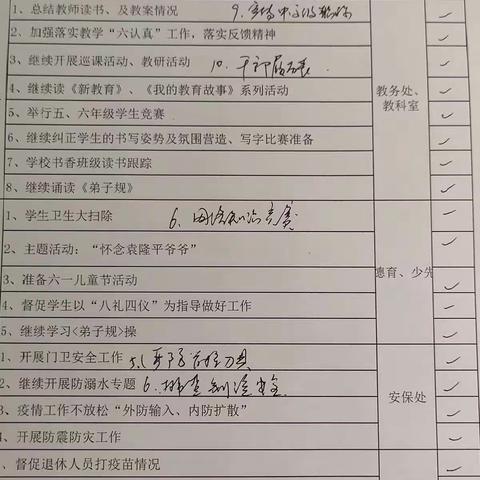 1、总结教师读书、及教案情况 9、
2、加强落实教学“六认真”工作，落实反馈精神
3、继续开展巡课活动、教研活动 10、
4、继续读《新教育》、《我的教育故事》系列活动
教务处、
教科室
5、举行五、六年级学生竞赛
6、继续纠正学生的书写姿势及氛围营造、写字比赛准备
7、学校书香班级读书跟踪
8、继续诵读《弟子规》
1、学生卫生大扫除 6、网络知识竞赛
2、主题活动：“怀念袁隆平爷爷”
德育、少先
3、准备六一儿童节活动
4、督促学生以“八礼四仪”为指导做好工作
5、继续学习<弟子规>操
1、开展门卫安全工作 5、
2、继续开展防溺水专题 6、排查
安保处
3、疫情工作不放松“外防输入、内防扩散”
4、开展防震防灾工作
、督促退休人员打疫苗情况